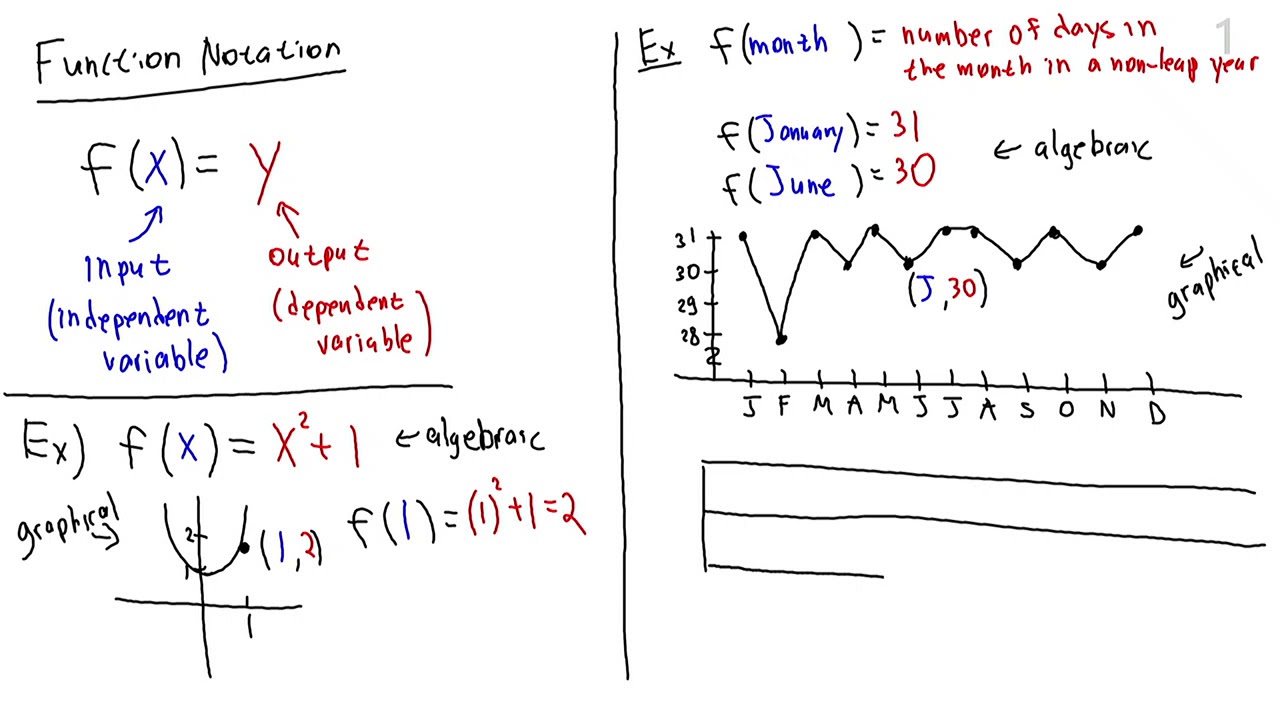 Function Notation
f(x) = y
input
(independent
variable)
output
(dependent
variable)
Ex) f(x) = x²+1 ← algebraic
graphical →
2
1
(1,2)
1
f(1) = (1)²+1=2
1
Ex f(month) = number of days in
the month in a non-leap year
f(January) = 31
f(June) = 30
← algebraic
31
30
29
28
(J,30)
← graphical
J F M A M J J A S O N D